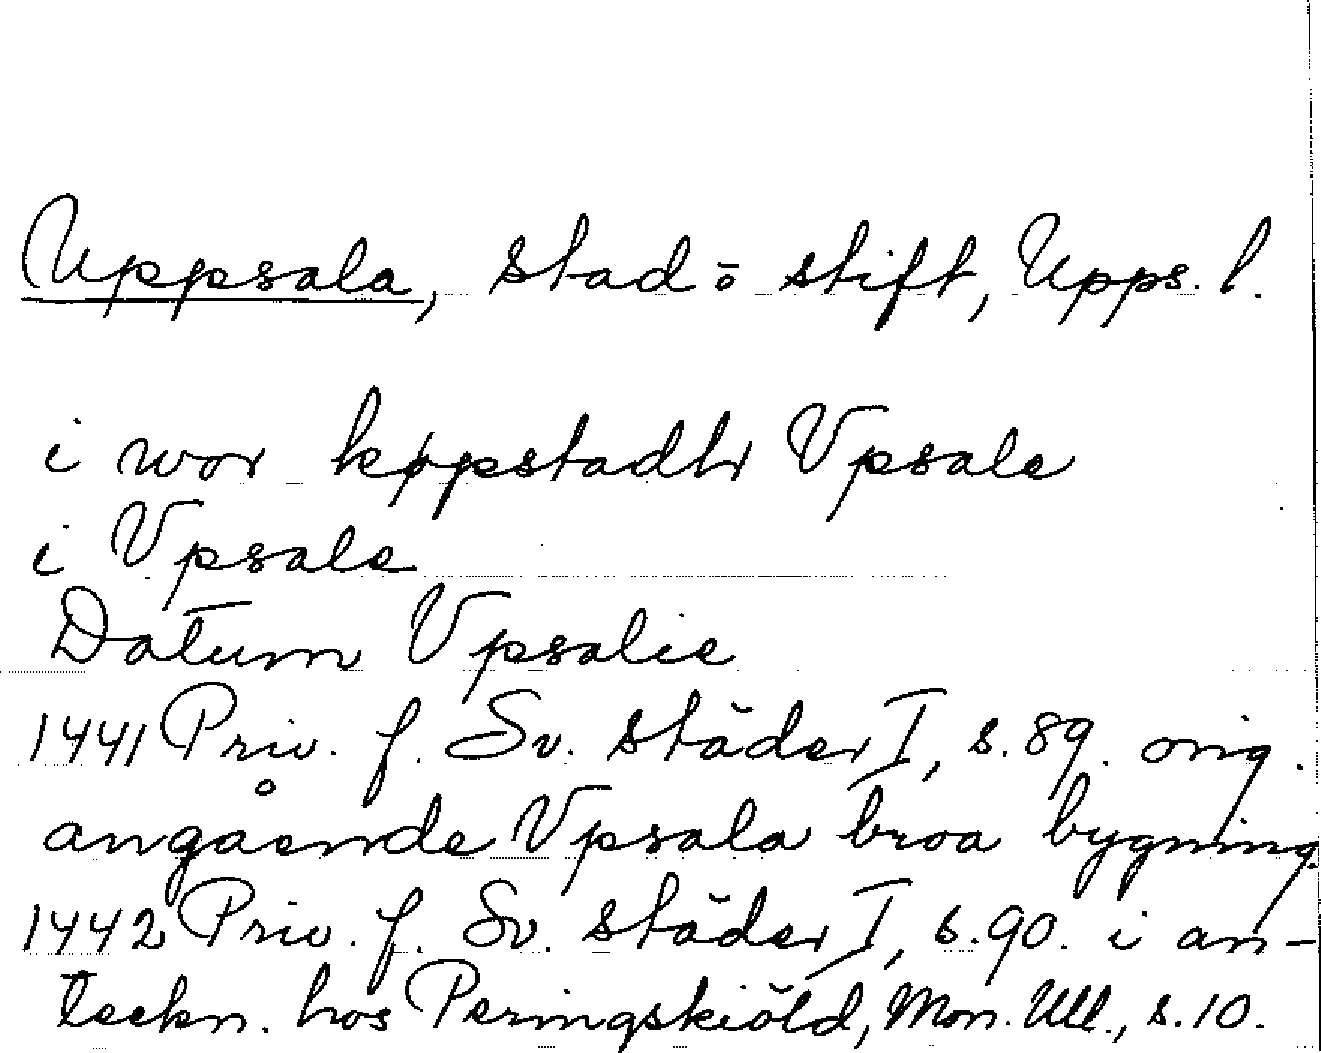 Uppsala, stad o stift, Upps. l.
i wor køpstadh Vpsale
i Vpsale
Datum Vpsalie
1441 Priv. f. Sv. städer I, s. 89. orig.
angående Vpsala broa bygning.
1442 Priv. f. Sv. städer I, s. 90. i an-
teckn. hos Peringskiöld, Mon. Ull., s. 10.